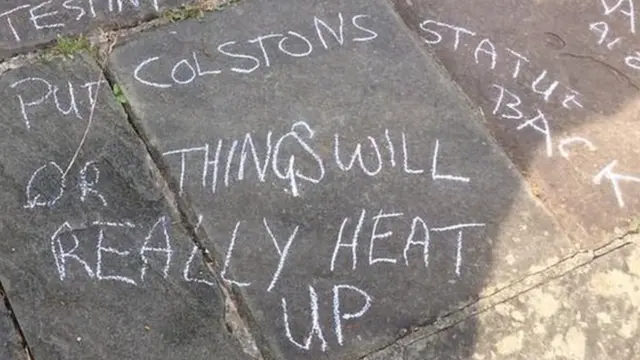 TESTIN
PUT COLSTONS STATUE BACK
OR THINGS WILL
REALLY HEAT
UP